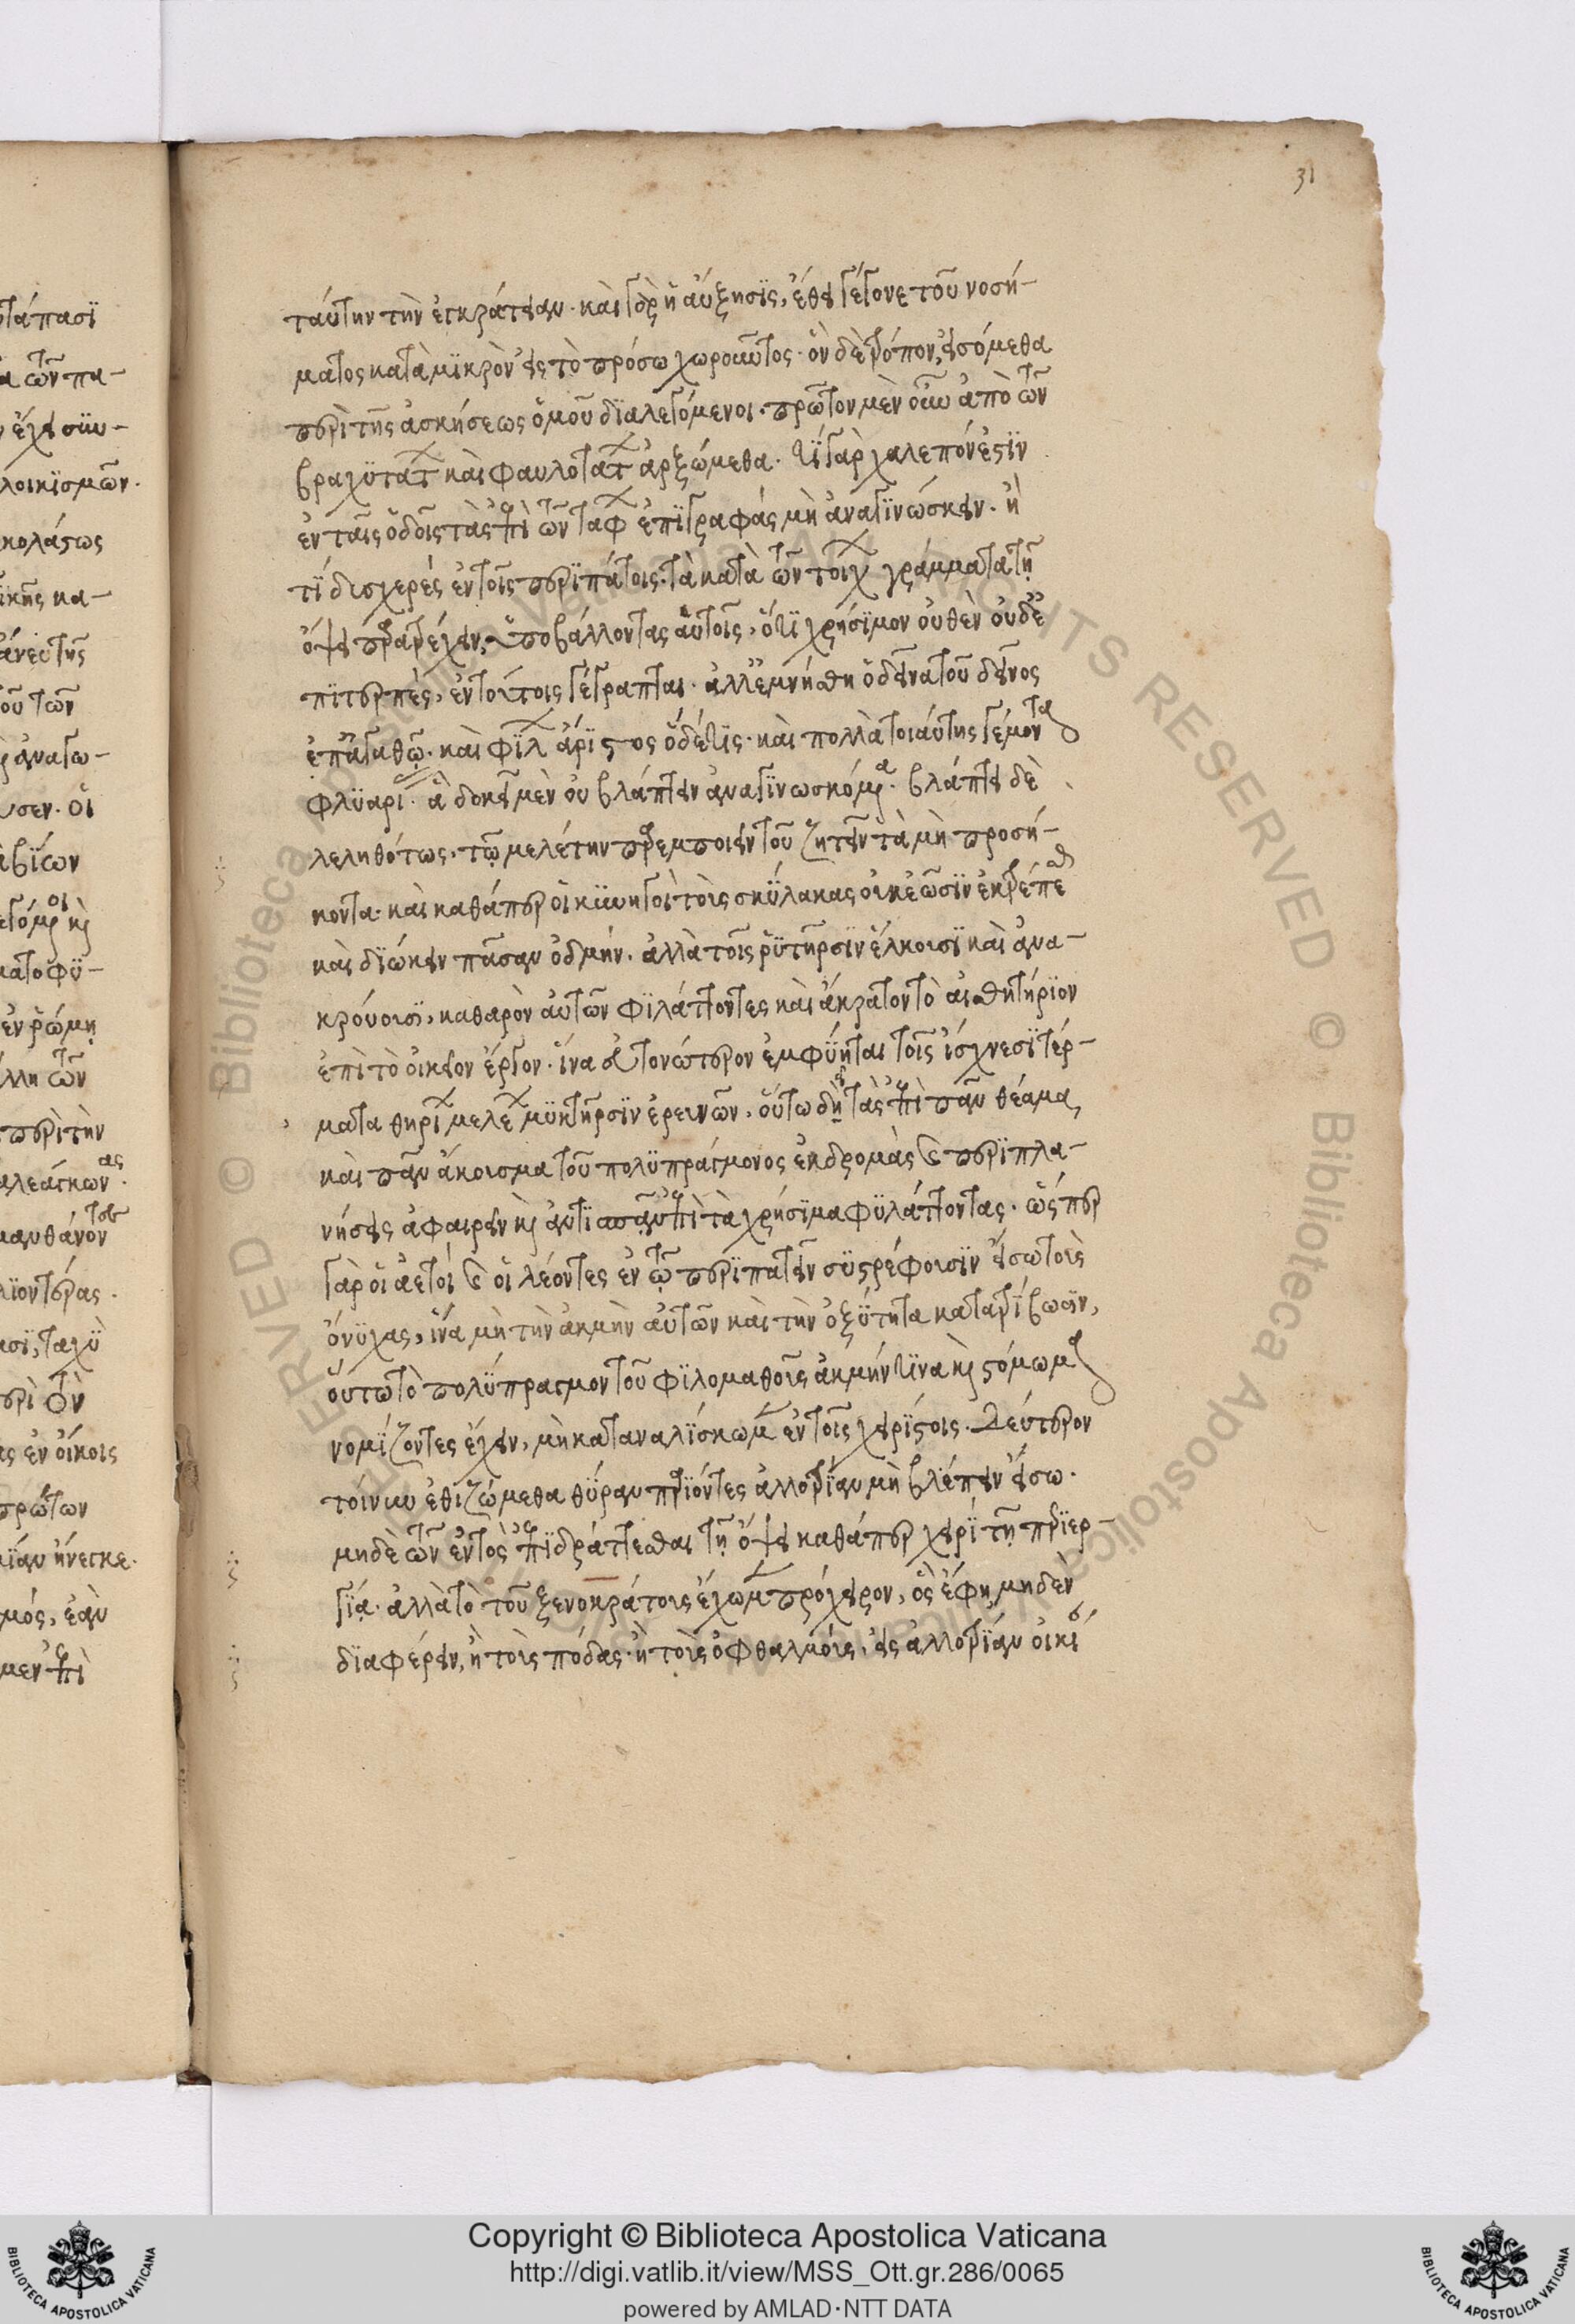 31
ταύτην τὴν ἐγκράτειαν. καὶ γὰρ ἡ αὔξησις, ἔθει γέγονε τοῦ νοσή-
ματος κατὰ μικρὸν εἰς τὸ πρόσω χωροῦντος. ὃν δὲ τρόπον, εἰσόμεθα
περὶ τῆς ἀσκήσεως ὁμοῦ διαλεγόμενοι. πρῶτον μὲν οὖν ἀπὸ τῶν
βραχυτάτ καὶ φαυλοτάτ ἀρξώμεθα. τί γὰρ χαλεπόν ἐστιν
ἐν ταῖς ὁδοῖς τὰς ἐπὶ τῶν ταφ ἐπιγραφάς μὴ ἀναγινώσκειν. ἢ
τί δυσχερές ἐν τοῖς περιπάτοις. τὰ κατὰ τῶν τοίχ γράμματα τῇ
ὄψει παρατρέχειν, ὑποβάλλοντας αὑτοῖς, ὅτι χρήσιμον οὐθὲν οὐδὲ
ἐπιτερπὲς, ἐν τούτοις γέγραπται. ἀλλ' ἐμνήσθη ὁ δεῖνα τοῦ δεῖνος
ἐπ' ἀγαθῷ. καὶ φίλ ἄριστος ὅδέ τις. καὶ πολλὰ τοιαύτης γέμοντα
φλυαρί. ἃ δοκεῖ μὲν οὐ βλάπτειν ἀναγινωσκόμενα. βλάπτει δὲ
λεληθότως. τῷ μελέτην παρεμποιεῖν τοῦ ζητεῖν τὰ μὴ προσή-
κοντα. καὶ καθάπερ οἱ κυνηγοὶ τοὺς σκύλακας οὐκ ἐῶσιν ἐκτρέπεσθαι
καὶ διώκειν πᾶσαν ὀδμήν. ἀλλὰ τοῖς ῥυτῆρσιν ἕλκουσι καὶ ἀνα-
κρούουσι, καθαρὸν αὐτῶν φυλάττοντες καὶ ἄκρατον τὸ αἰσθητήριον
ἐπὶ τὸ οἰκεῖον ἔργον. ἵνα εὐτονώτερον ἐμφύηται τοῖς ἴχνεσι τέρ-
ματα θηρί μελέ μυκτῆρσιν ἐρευνῶν. οὕτω δεῖ τὰς ἐπὶ πᾶν θέαμα
καὶ πᾶν ἄκουσμα τοῦ πολυπράγμονος ἐκδρομὰς καὶ περιπλα-
νήσεις ἀφαιρεῖν καὶ ἀντισπᾶν ἐπὶ τὰ χρήσιμα φυλάττοντας. ὥσπερ
γὰρ οἱ ἀετοί καὶ οἱ λέοντες ἐν τῷ περιπατεῖν συστρέφουσιν εἴσω τοὺς
ὄνυχας, ἵνα μὴ τὴν ἀκμὴν αὐτῶν καὶ τὴν ὀξύτητα κατατρίβωσιν,
οὕτω τὸ πολύπραγμον τοῦ φιλομαθοῦς ἀκμήν τινα καὶ στόμωμα
νομίζοντες ἔχειν, μὴ καταναλίσκωμεν ἐν τοῖς χειρίστοις. Δεύτερον
τοίνυν ἐθιζώμεθα θύραν παριόντες ἀλλοτρίαν μὴ βλέπειν εἴσω.
μηδὲ τῶν ἐντὸς ἐπιδράττεσθαι τῇ ὄψει καθάπερ χειρὶ τῇ περιερ-
γίᾳ. ἀλλὰ τὸ τοῦ ξενοκράτους ἔχωμεν πρόχειρον, ὃς ἔφη μηδὲν
διαφέρειν, ἢ τοὺς πόδας. ἢ τοὺς ὀφθαλμούς, εἰς ἀλλοτρίαν οἰκί
Copyright © Biblioteca Apostolica Vaticana
http://digi.vatlib.it/view/MSS_Ott.gr.286/0065
powered by AMLAD·NTT DATA